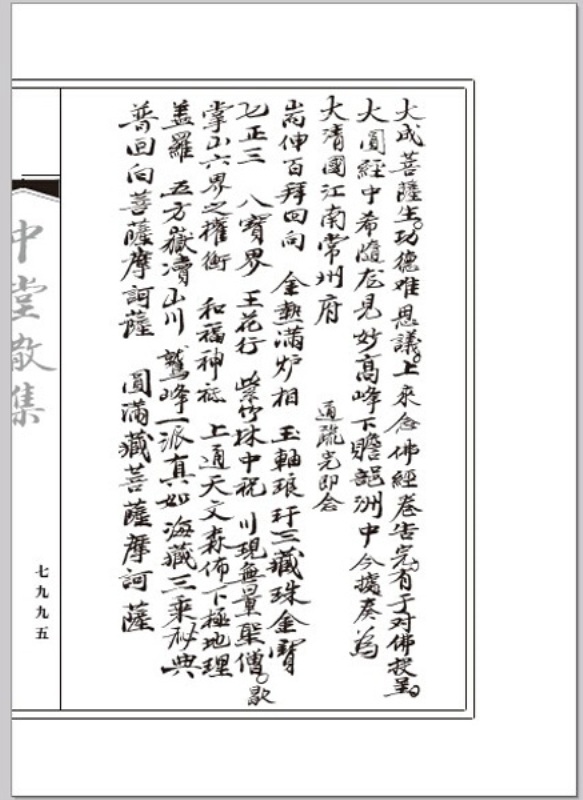 大成菩薩生。功德难思議。上来念佛經卷告完。有于对佛投呈。
大圓經中希隨龙見妙高峰下瞻部洲中今據奏為
大清國江南常州府 通疏完即念
耑伸百拜回向 金熱滿炉相 玉軸琅玕三藏珠金寶
七正三 八寶界 王花行 紫竹林中祝 川現無量聖僧。歇
掌山六界之權衡 和福神祗 上通天文森佈下極地理
盖羅 五方嶽瀆山川 鷲峰一派真如海藏三乘秘典
普回向菩薩摩訶薩 圓滿藏菩薩摩訶薩
中堂散集
七九九五